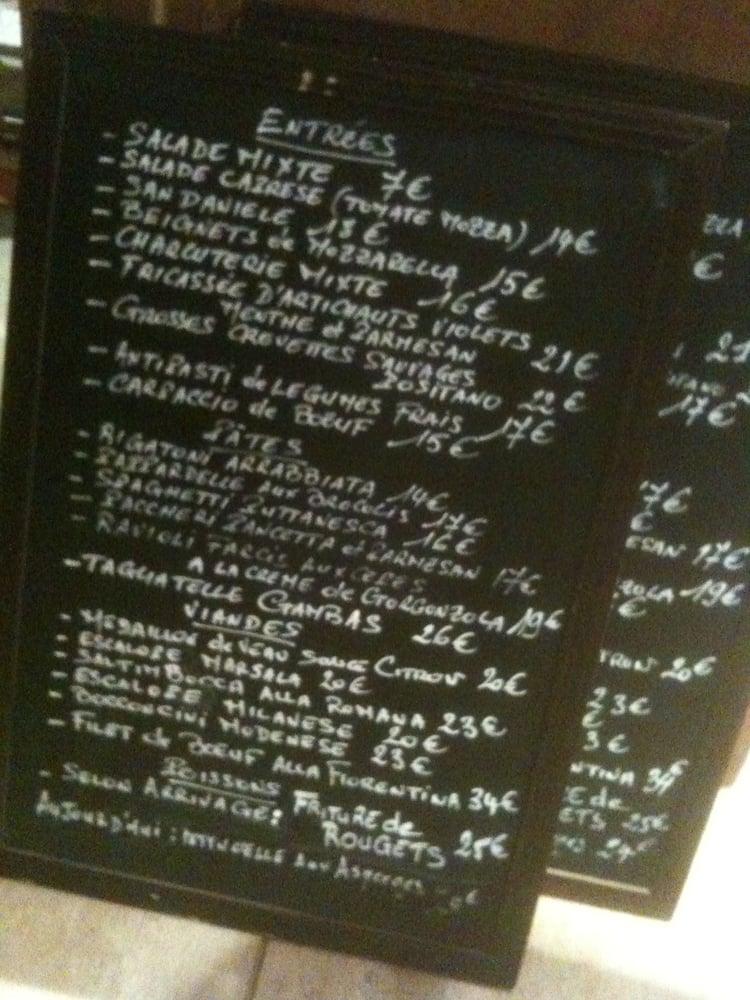 ENTRÉES
- SALADE MIXTE 7€
- SALADE CAPRESE (TOMATE MOZZA) 14€
- SAN DANIELE 18€
- BEIGNETS de MOZZARELLA 15€
- CHARCUTERIE MIXTE 16€
- FRICASSÉE D'ARTICHAUTS VIOLETS
MENTHE et PARMESAN 21€
- GROSSES CREVETTES SAUVAGES
POSITANO 22€
- ANTIPASTI de LEGUMES FRAIS 17€
- CARPACCIO de BŒUF 15€
PÂTES
- RIGATONI ARRABBIATA 14€
- PAPPARDELLE AUX BROCOLIS 17€
- SPAGHETTI PUTTANESCA 16€
- PACCHERI PANCETTA et PARMESAN 17€
- RAVIOLI FARCIS AUX CEPES
A LA CREME de GORGONZOLA 19€
- TAGLIATELLE GAMBAS 26€
VIANDES
- MEDAILLON de VEAU SAUCE CITRON 20€
- ESCALOPE MARSALA 20€
- SALTIMBOCCA ALLA ROMANA 23€
- ESCALOPE MILANESE 20€
- BOCCONCINI MODENESE 23€
- FILET de BŒUF ALLA FIORENTINA 34€
POISSONS
- SELON ARRIVAGE: FRITURE de
ROUGETS 25€
AUJOURD'HUI : AUX ASPERGES
ZZA
€
21
17€
17€
€
ESAN 17€
ZOLA 19€
€
TRON 20€
23€
€
3€
NTINA 34€
E de
ETS 25€
24€